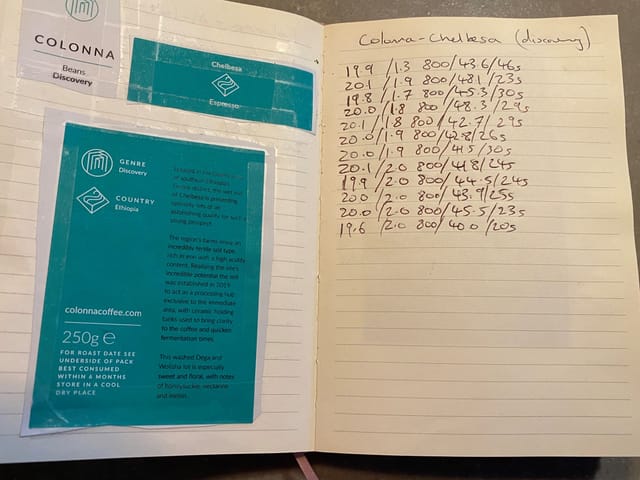 COLONNA
Beans
Discovery
Chelbesa
Espresso
GENRE
Discovery
COUNTRY
Ethiopia
of southern Ethiopia's
of Chelbesa is presenting
specialty lots of an
astonishing quality for such a
young prospect.
The region's farms enjoy an
incredibly fertile soil type,
rich in iron with a high acidity
content. Realising the site's
incredible potential the mill
was established in 2019
to act as a processing hub
exclusive to the immediate
area, with ceramic holding
tanks used to bring clarity
to the coffee and quicken
fermentation times.
This washed Dega and
Wolisha lot is especially
sweet and floral, with notes
of honeysuckle, nectarine
and melon.
colonnacoffee.com
250g e
FOR ROAST DATE SEE
UNDERSIDE OF PACK
BEST CONSUMED
WITHIN 6 MONTHS
STORE IN A COOL
DRY PLACE
Colonna-Chelbesa (discovery)
19.9 /1.3 800/43.6/46s
20.1 /1.9 800/48.1/23s
19.8 /1.7 800/45.3/30s
20.0 /1.8 800/48.3/29s
20.1 /1.8 800/42.7/29s
20.0 /1.9 800/42.8/26s
20.0 /1.9 800/41.5/30s
20.1 /2.0 800/41.8/24s
19.9 /2.0 800/44.5/24s
20.0 /2.0 800/43.9/25s
20.0 /2.0 800/45.5/23s
19.6 /2.0 800/40.0/20s